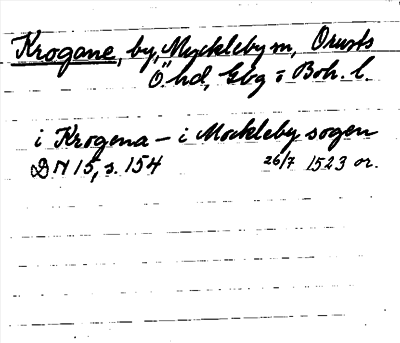 Krogane, by, Myckleby sn, Orusts
Ö. hd, Gbg o Boh. l.
i Krogena – i Mockleby sogen
DN 15, s. 154 26/7 1523 or.